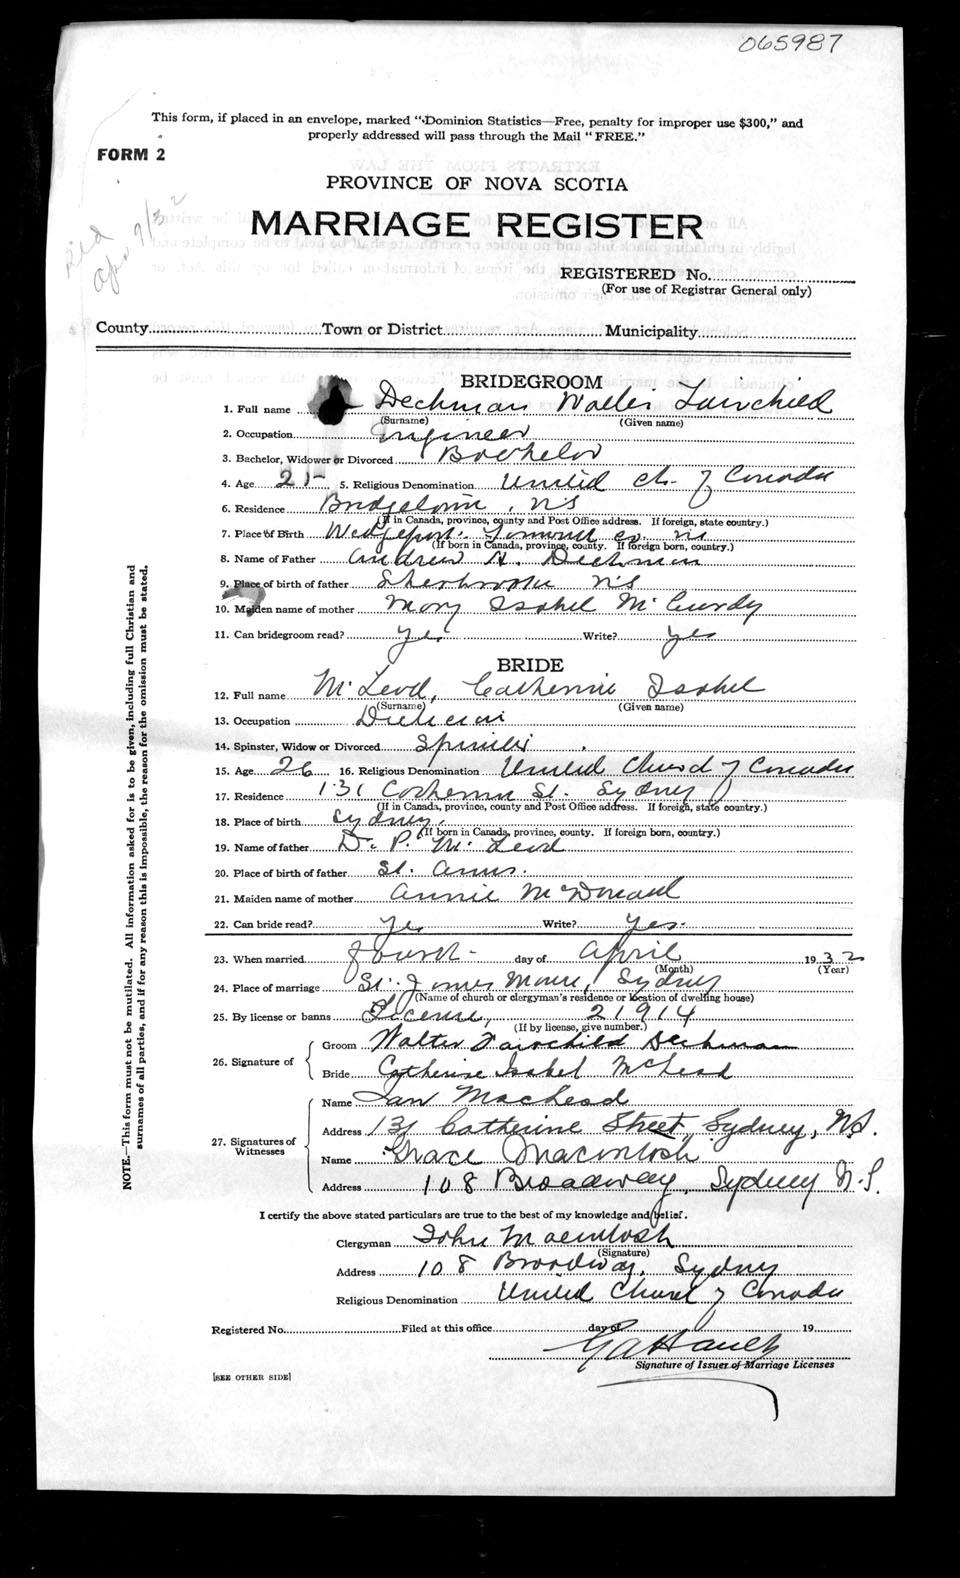 065987
This form, if placed in an envelope, marked "Dominion Statistics—Free, penalty for improper use $300," and
properly addressed will pass through the Mail "FREE."
FORM 2
PROVINCE OF NOVA SCOTIA
MARRIAGE REGISTER
Apr 9/32
REGISTERED No.
(For use of Registrar General only)
County Town or District Municipality
BRIDEGROOM
1. Full name Deckman Walter Fairchild
(Surname) (Given name)
2. Occupation Engineer
3. Bachelor, Widower or Divorced Bachelor
4. Age 21 5. Religious Denomination United Ch. of Canada
6. Residence Bridgetown, NS
(If in Canada, province, county and Post Office address. If foreign, state country.)
7. Place of Birth Wedgeport. Yarmouth Co. NS
(If born in Canada, province, county. If foreign born, country.)
8. Name of Father Andrew H. Deckman
9. Place of birth of father Sherbrooke NS
10. Maiden name of mother Mary Isabel McCurdy
11. Can bridegroom read? yes Write? yes
BRIDE
12. Full name McLeod, Catherine Isabel
(Surname) (Given name)
13. Occupation Dietician
14. Spinster, Widow or Divorced Spinster
15. Age 26 16. Religious Denomination United Church of Canada
17. Residence 131 Catherine St. Sydney
(If in Canada, province, county and Post Office address. If foreign, state country.)
18. Place of birth Sydney.
(If born in Canada, province, county. If foreign born, country.)
19. Name of father D. P. McLeod
20. Place of birth of father St. Anns.
21. Maiden name of mother Annie McDonald
22. Can bride read? Yes Write? Yes.
23. When married fourth day of April 1932
(Month) (Year)
24. Place of marriage St. James Manse, Sydney
(Name of church or clergyman's residence or location of dwelling house)
25. By license or banns License, 21914
(If by license, give number.)
26. Signature of
Groom Walter Fairchild Deckman
Bride Catherine Isabel McLeod
27. Signatures of
Witnesses
Name Ian MacLeod
Address 131 Catherine Street, Sydney, N.S.
Name Grace Macintosh
Address 108 Broadway, Sydney N.S.
I certify the above stated particulars are true to the best of my knowledge and belief.
Clergyman John Macintosh
(Signature)
Address 108 Broadway, Sydney
Religious Denomination United Church of Canada
Registered No. Filed at this office day of 19
Signature of Issuer of Marriage Licenses
[SEE OTHER SIDE]
NOTE.—This form must not be mutilated. All information asked for is to be given, including full Christian and
surnames of all parties, and if for any reason this is impossible, the reason for the omission must be stated.